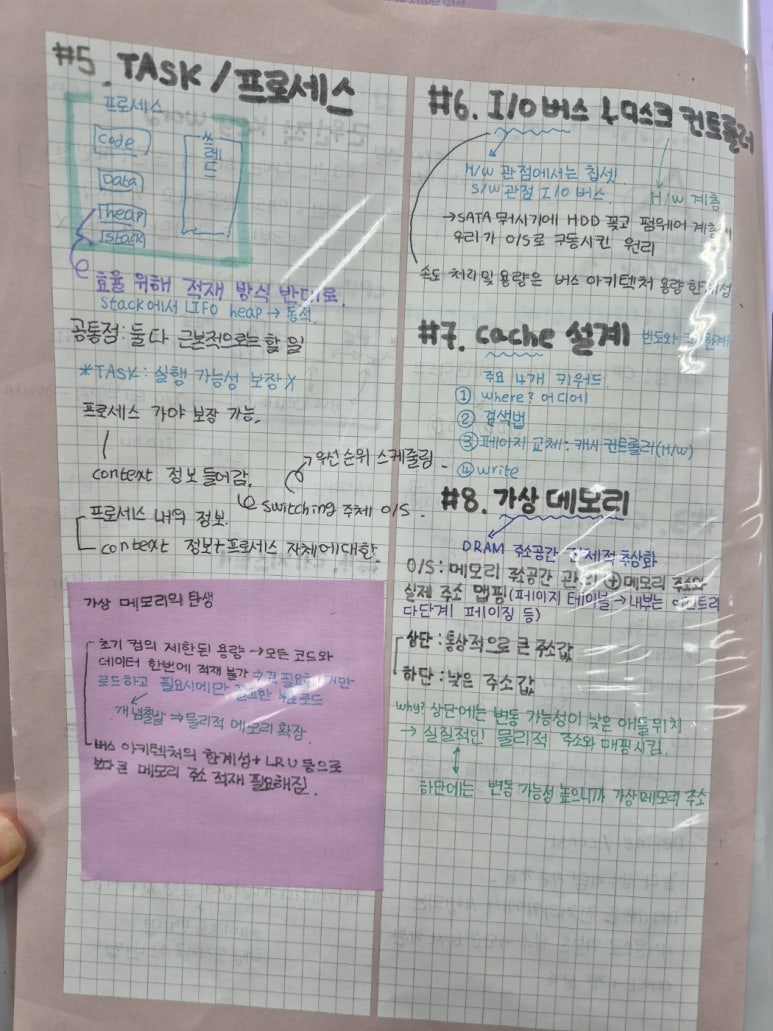 #5. TASK / 프로세스
프로세스
code
Data
heap
stack
쓰레드
효율 위해 적재 방식 반대로.
stack에서 LIFO heap → 동적
공통점: 둘 다 근본적으로는 할 일
*TASK: 실행 가능성 보장 X
프로세스 가야 보장 가능.
context 정보 들어감.
우선순위 스케줄링.
switching 주체 O/S.
프로세스 내의 정보.
context 정보 + 프로세스 자체에 대한
가상 메모리의 탄생
초기 컴의 제한된 용량 → 모든 코드와
데이터 한번에 적재 불가 →
로드하고 필요시에만 필요한 부분 로드
개념출발 ⇒ 물리적 메모리 확장.
버스 아키텍처의 한계성 + LRU 등으로
메모리 주소 적재 필요해짐.
#6. I/O 버스 디스크 컨트롤러
H/W 관점에서는 칩셋.
S/W 관점 I/O 버스
H/W 계층
→ SATA HDD 꽂고 펌웨어
우리가 O/S로 구동시킨 원리
속도 처리 및 용량은 버스 아키텍처 용량
#7. cache 설계
주요 4개 키워드.
① where? 어디에
② 검색법
③ 페이지 교체: 캐시 컨트롤러(H/W)
④ write
#8. 가상 메모리
DRAM 주소공간 추상화
O/S: 메모리 주소공간 관리 ⊕ 메모리 주소와
실제 주소 맵핑 (페이지 테이블 → 내부는 엔트리
다단계 페이징 등)
상단: 통상적으로 큰 주소값
하단: 낮은 주소값
why? 상단에는 변동 가능성이 낮은 애들 위치
→ 실질적인 물리적 주소와 매핑시킴.
하단에는 변동 가능성 높으니까 가상 메모리 주소